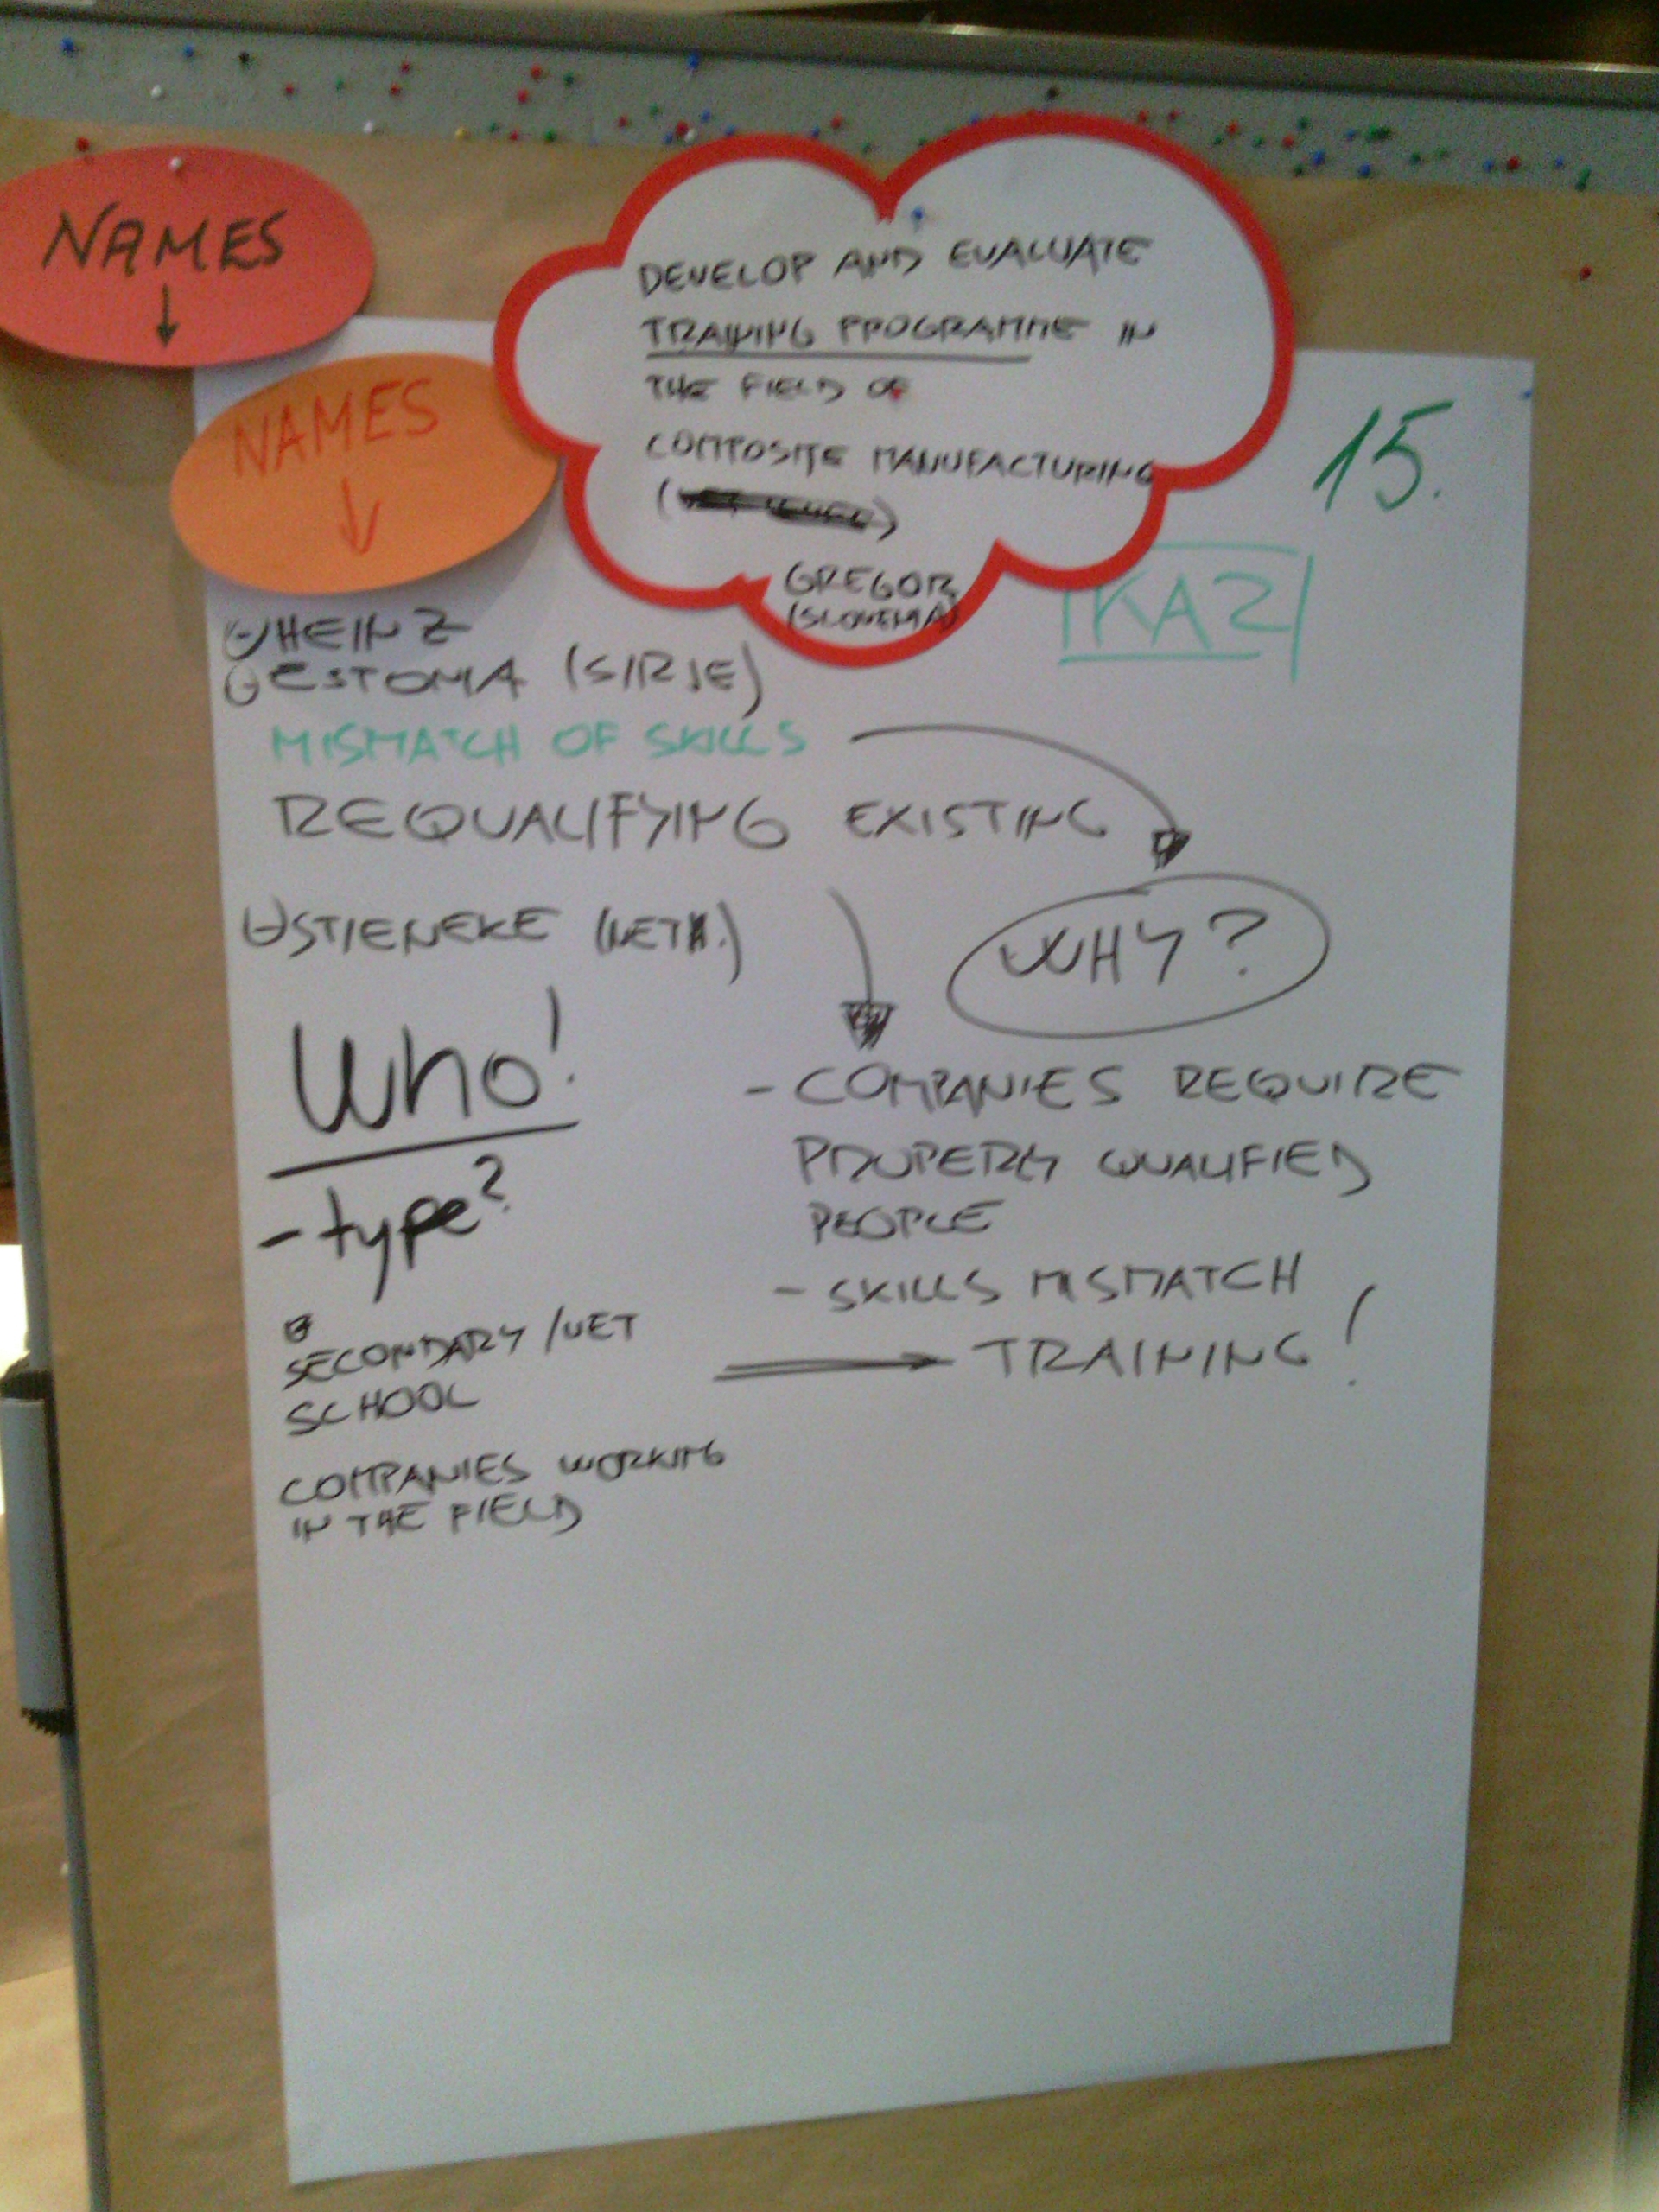 NAMES
NAMES
DEVELOP AND EVALUATE
TRAINING PROGRAMME IN
THE FIELD OF
COMPOSITE MANUFACTURING
GREGOR
(SLOVENIA)
15.
KA2
HEINZ
ESTONIA (SIRJE)
MISMATCH OF SKILLS
REQUALIFYING EXISTING
STIENEKE (NETH.)
WHY?
Who!
- type?
- COMPANIES REQUIRE
PROPERLY QUALIFIED
PEOPLE
- SKILLS MISMATCH
TRAINING!
SECONDARY / VET
SCHOOL
COMPANIES WORKING
IN THE FIELD